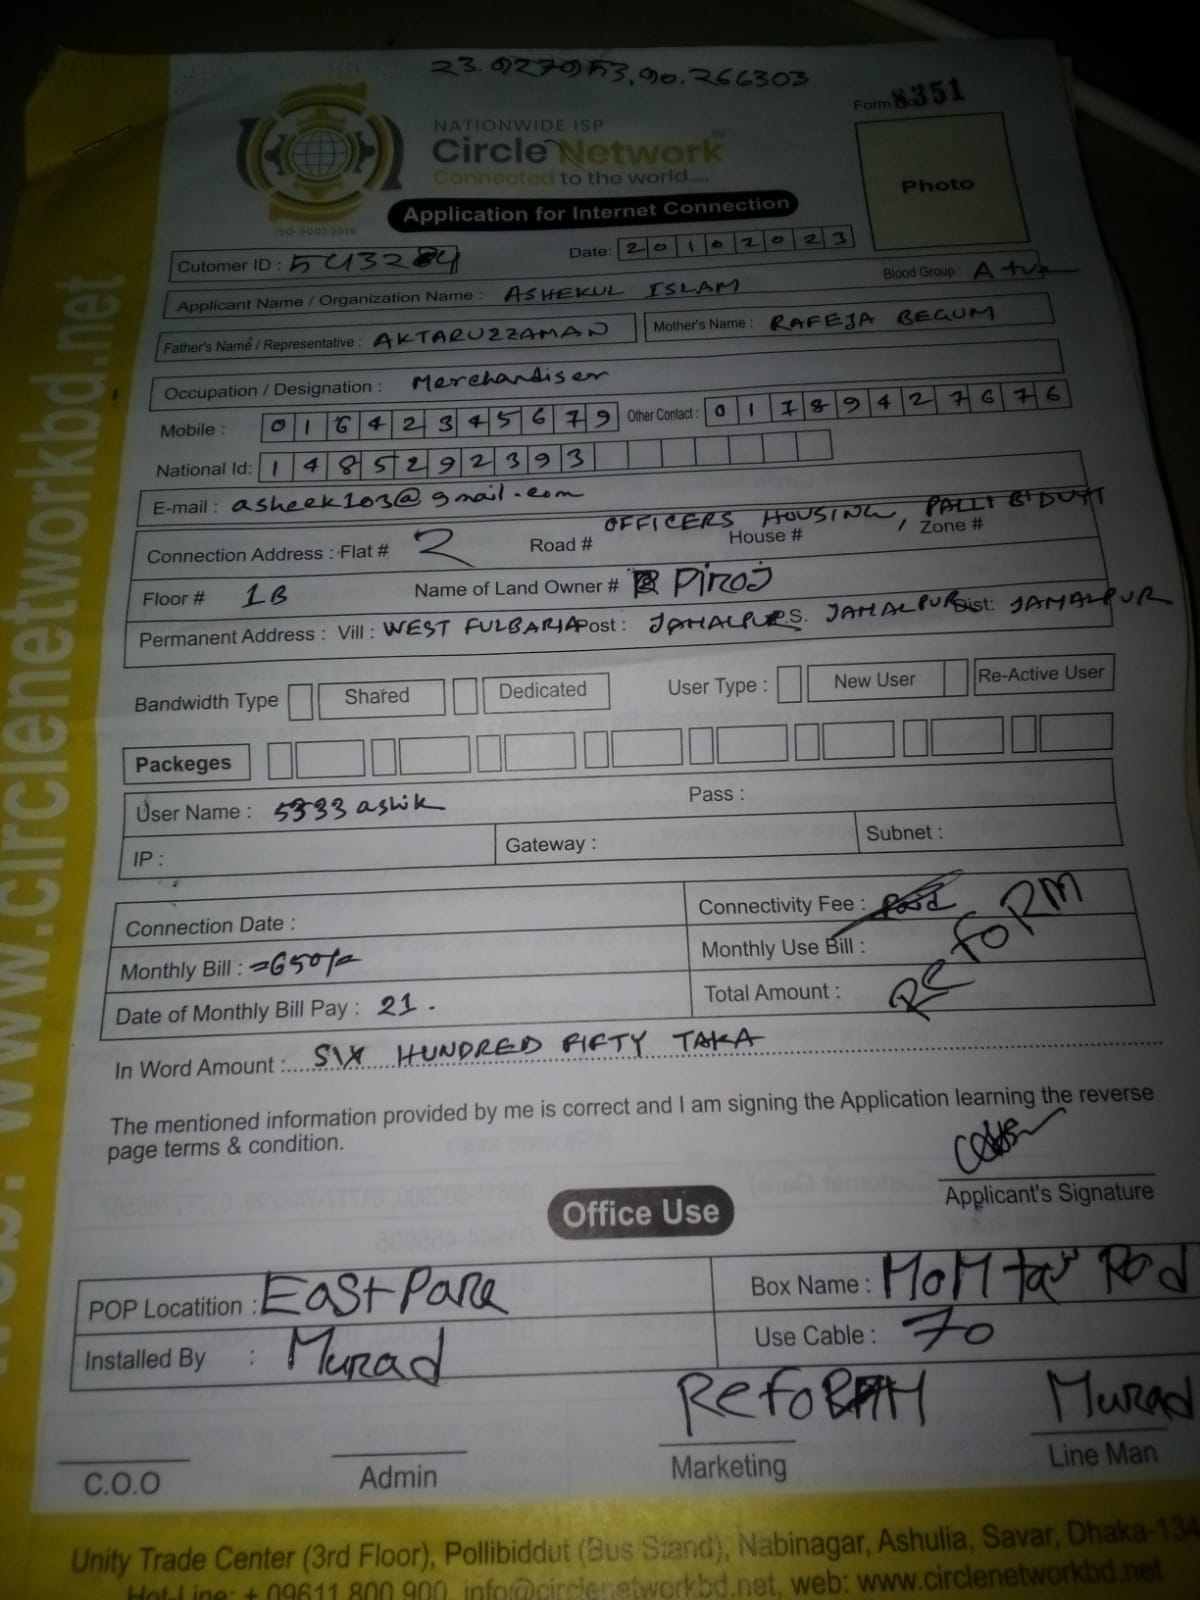 23.927953, 90.266303
Form 8351
NATIONWIDE ISP
Circle Network
Connected to the world.....
ISO 9001:2015
Photo
Application for Internet Connection
Cutomer ID : 543284 Date: 20102023
Applicant Name / Organization Name : ASHEKUL ISLAM Blood Group : A +ve
Father's Name / Representative : AKTARUZZAMAN Mother's Name : RAFEJA BEGUM
Occupation / Designation : Merchandiser
Mobile : 01642345679 Other Contact : 01789427676
National Id: 1485292393
E-mail : asheek103@gmail.com
OFFICERS HOUSING, PALLI BIDUYT
Connection Address : Flat # 2 Road # House # Zone #
Floor # 1B Name of Land Owner # Piroj
Permanent Address : Vill : WEST FULBARIA Post : JAMALPUR P.S. JAMALPUR Dist: JAMALPUR
Bandwidth Type Shared Dedicated User Type : New User Re-Active User
Packeges
User Name : 5333ashik Pass :
IP : Gateway : Subnet :
Connection Date : Connectivity Fee : Paid
Monthly Bill : =650/= Monthly Use Bill :
Date of Monthly Bill Pay : 21. Total Amount :
ReFoRM
In Word Amount : SIX HUNDRED FIFTY TAKA
The mentioned information provided by me is correct and I am signing the Application learning the reverse
page terms & condition.
Applicant's Signature
Office Use
POP Locatition : East Para Box Name : MoMtaj Rod
Installed By : Murad Use Cable : 70
C.O.O Admin
RefoRM Murad
Marketing Line Man
Unity Trade Center (3rd Floor), Pollibiddut (Bus Stand), Nabinagar, Ashulia, Savar, Dhaka-134
Hot-Line: + 09611 800 900, info@circlenetworkbd.net, web: www.circlenetworkbd.net
Web: www.circlenetworkbd.net